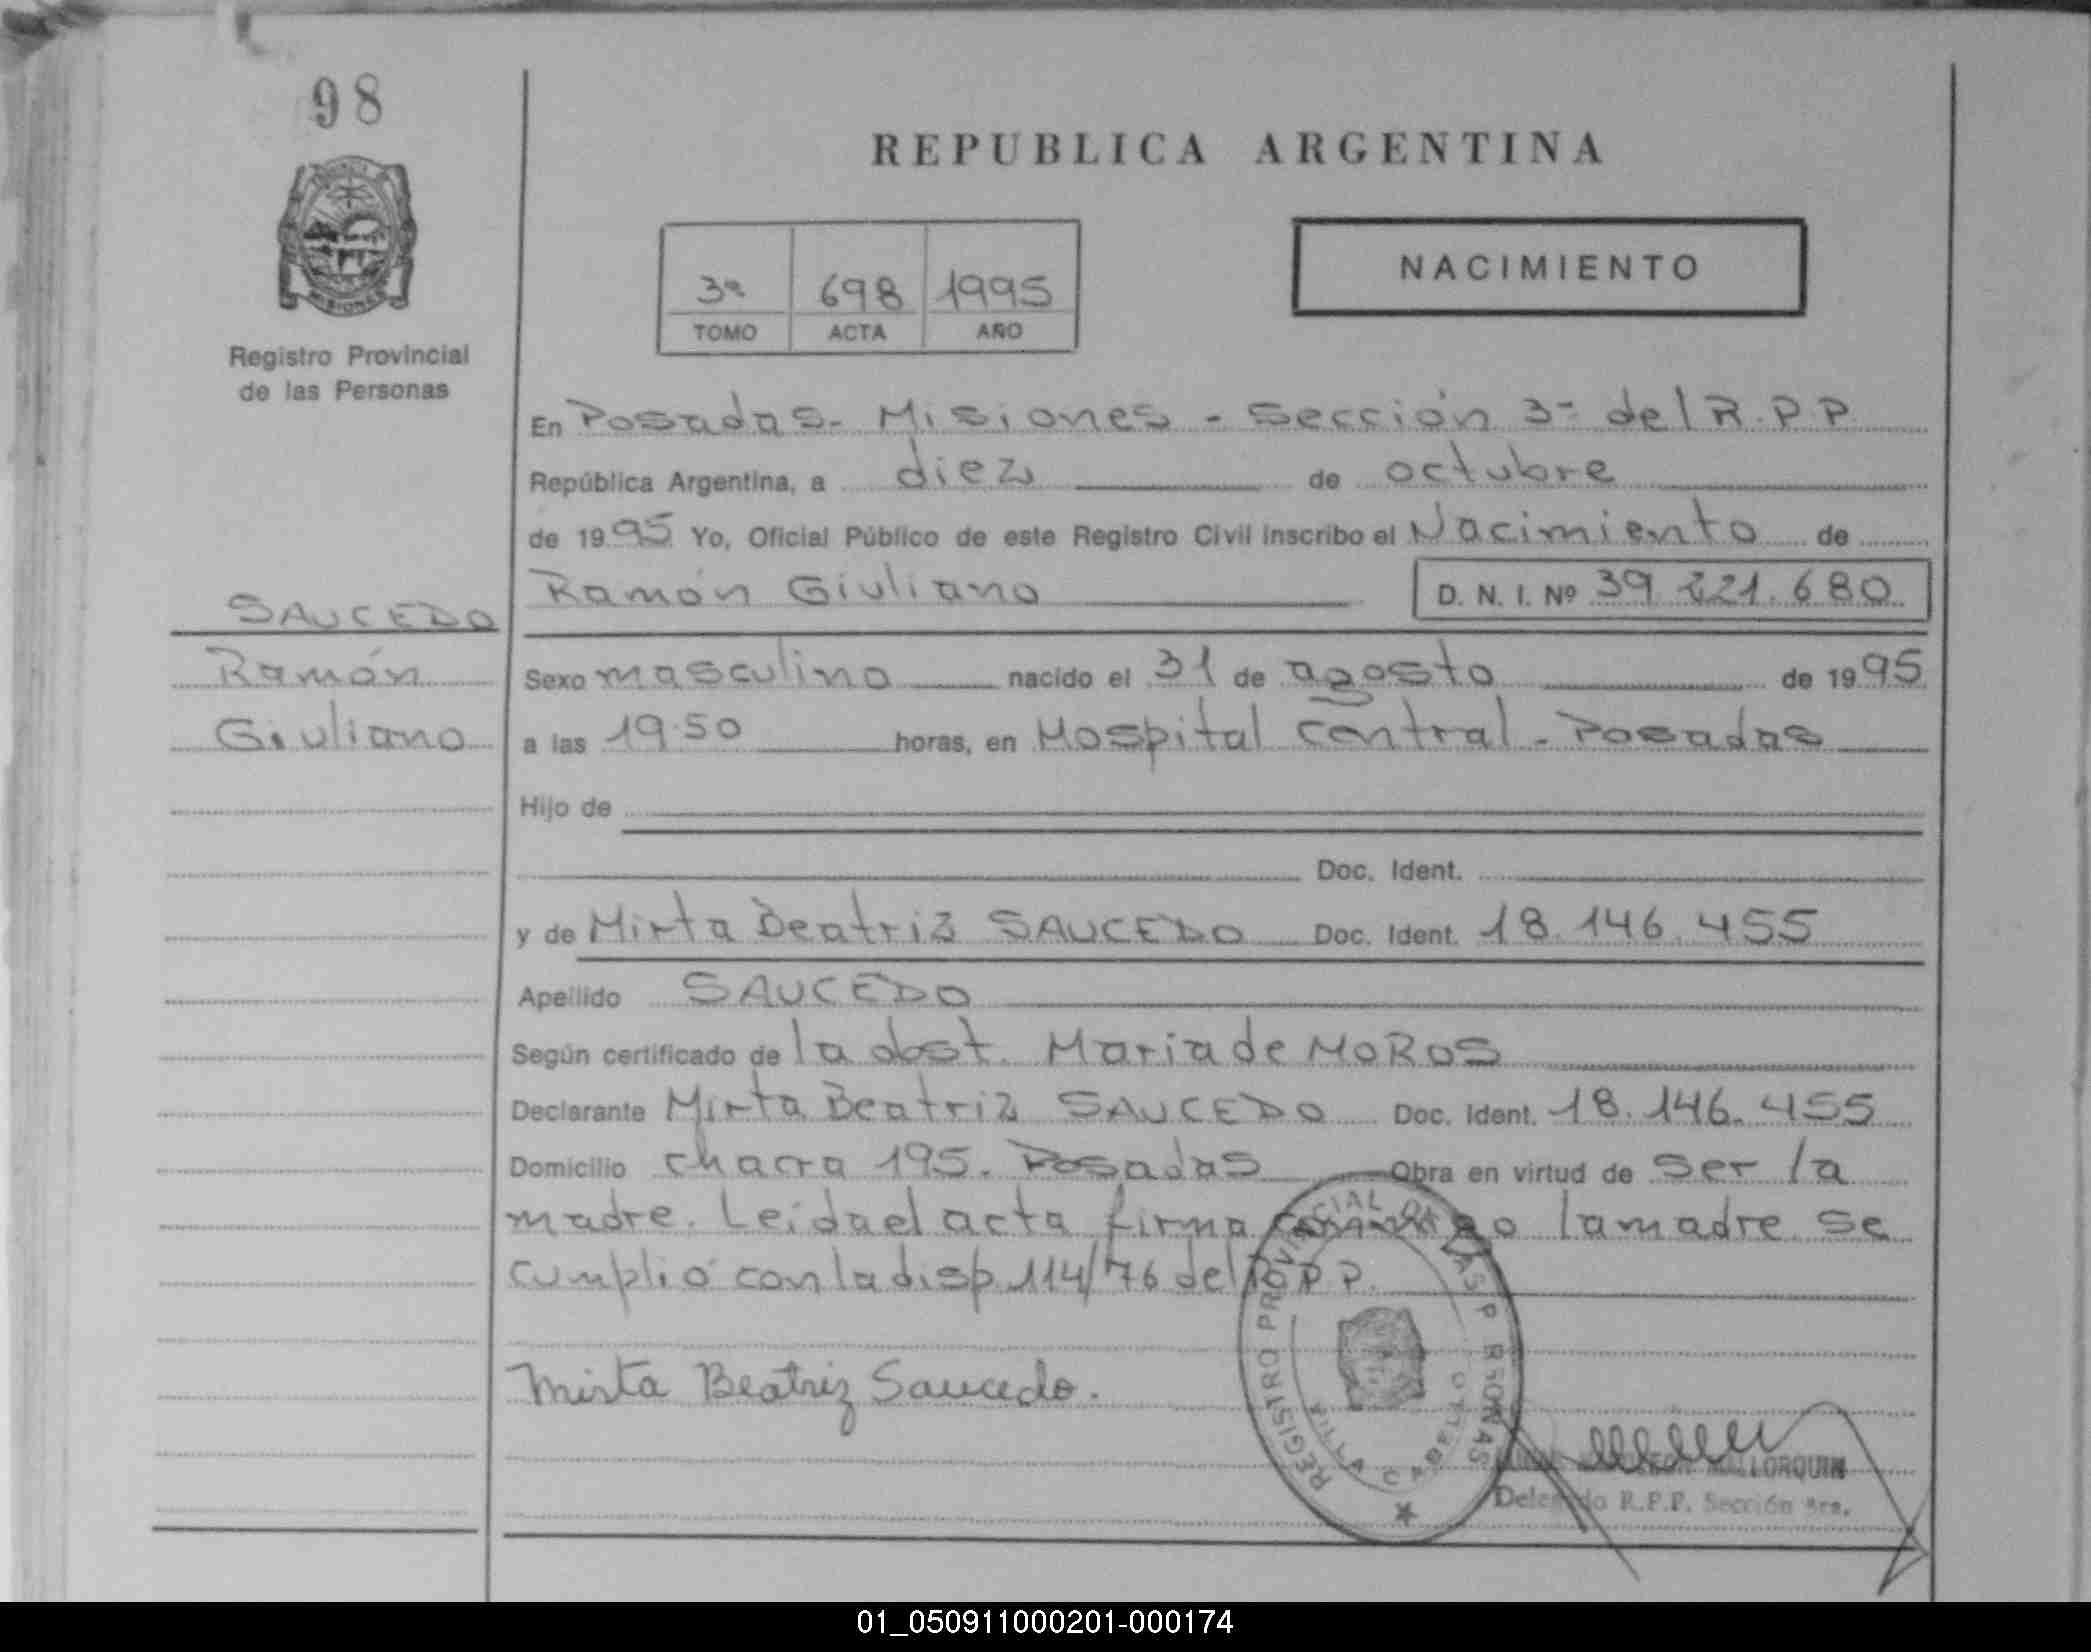 98
REPUBLICA ARGENTINA
MISIONES
Registro Provincial
de las Personas
3ª 698 1995
TOMO ACTA AÑO
NACIMIENTO
En Posadas - Misiones - Sección 3ª del R.P.P.
República Argentina, a diez de octubre
de 1995 Yo, Oficial Público de este Registro Civil inscribo el Nacimiento de
Ramón Giuliano D. N. I. Nº 39.221.680
SAUCEDO
Ramón
Giuliano
Sexo masculino nacido el 31 de agosto de 1995
a las 19.50 horas, en Hospital Central - Posadas
Hijo de
Doc. Ident.
y de Mirta Beatriz SAUCEDO Doc. Ident. 18.146.455
Apellido SAUCEDO
Según certificado de la obst. Maria de MOROS
Declarante Mirta Beatriz SAUCEDO Doc. Ident. 18.146.455
Domicilio chacra 195. Posadas Obra en virtud de ser la
madre. Leida el acta firma conmigo la madre se
cumplió con la disp. 114/76 del R.P.P.
Mirta Beatriz Saucedo.
REGISTRO PROVINCIAL DE LAS PERSONAS
VILLA CABELLO
MALLORQUIN
Delegado R.P.P. Sección 3ra.
01_050911000201-000174